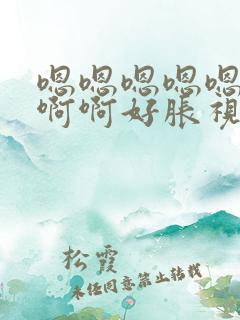 嗯嗯嗯嗯嗯
啊啊好胀视
松霞
未经同意禁止转载